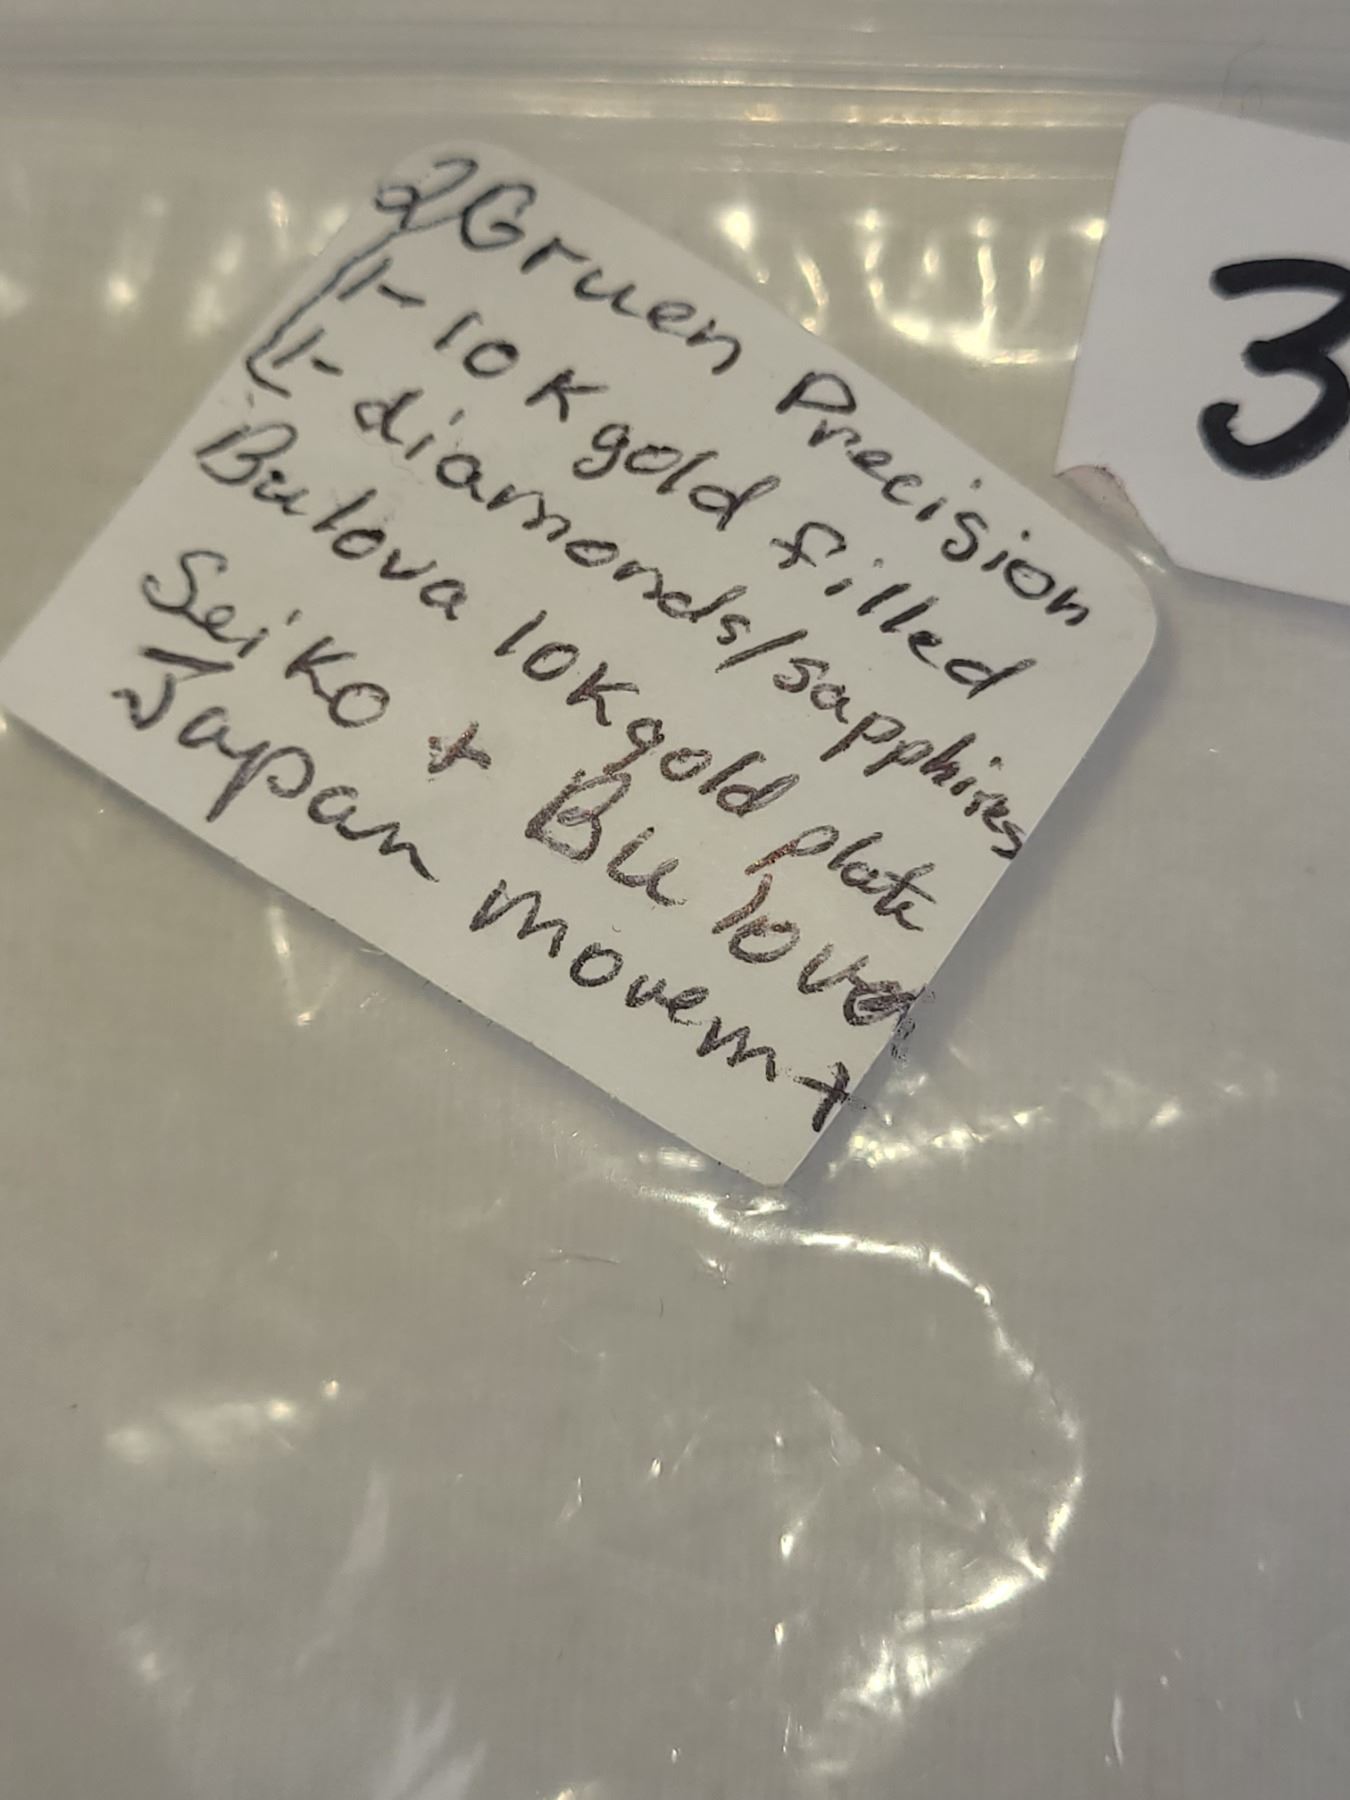 2 Gruen Precision
1- 10K gold filled
1- diamonds/sapphires
Bulova 10K gold plate
Seiko + Bulova
Japan movemt
3